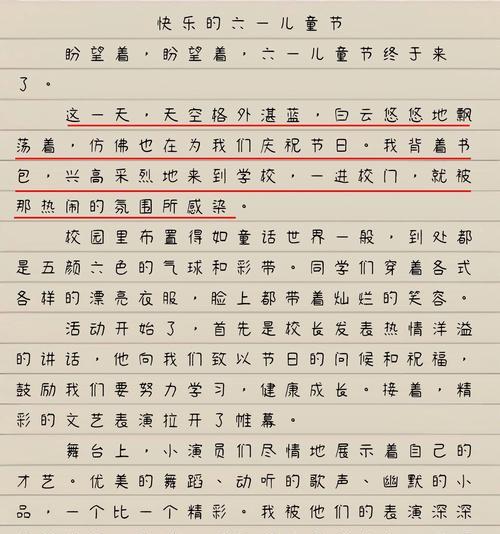 快乐的六一儿童节
盼望着，盼望着，六一儿童节终于来
了。
这一天，天空格外湛蓝，白云悠悠地飘
荡着，仿佛也在为我们庆祝节日。我背着书
包，兴高采烈地来到学校，一进校门，就被
那热闹的氛围所感染。
校园里布置得如童话世界一般，到处都
是五颜六色的气球和彩带。同学们穿着各式
各样的漂亮衣服，脸上都带着灿烂的笑容。
活动开始了，首先是校长发表热情洋溢
的讲话，他向我们致以节日的问候和祝福，
鼓励我们要努力学习，健康成长。接着，精
彩的文艺表演拉开了帷幕。
舞台上，小演员们尽情地展示着自己的
才艺。优美的舞蹈、动听的歌声、幽默的小
品，一个比一个精彩。我被他们的表演深深